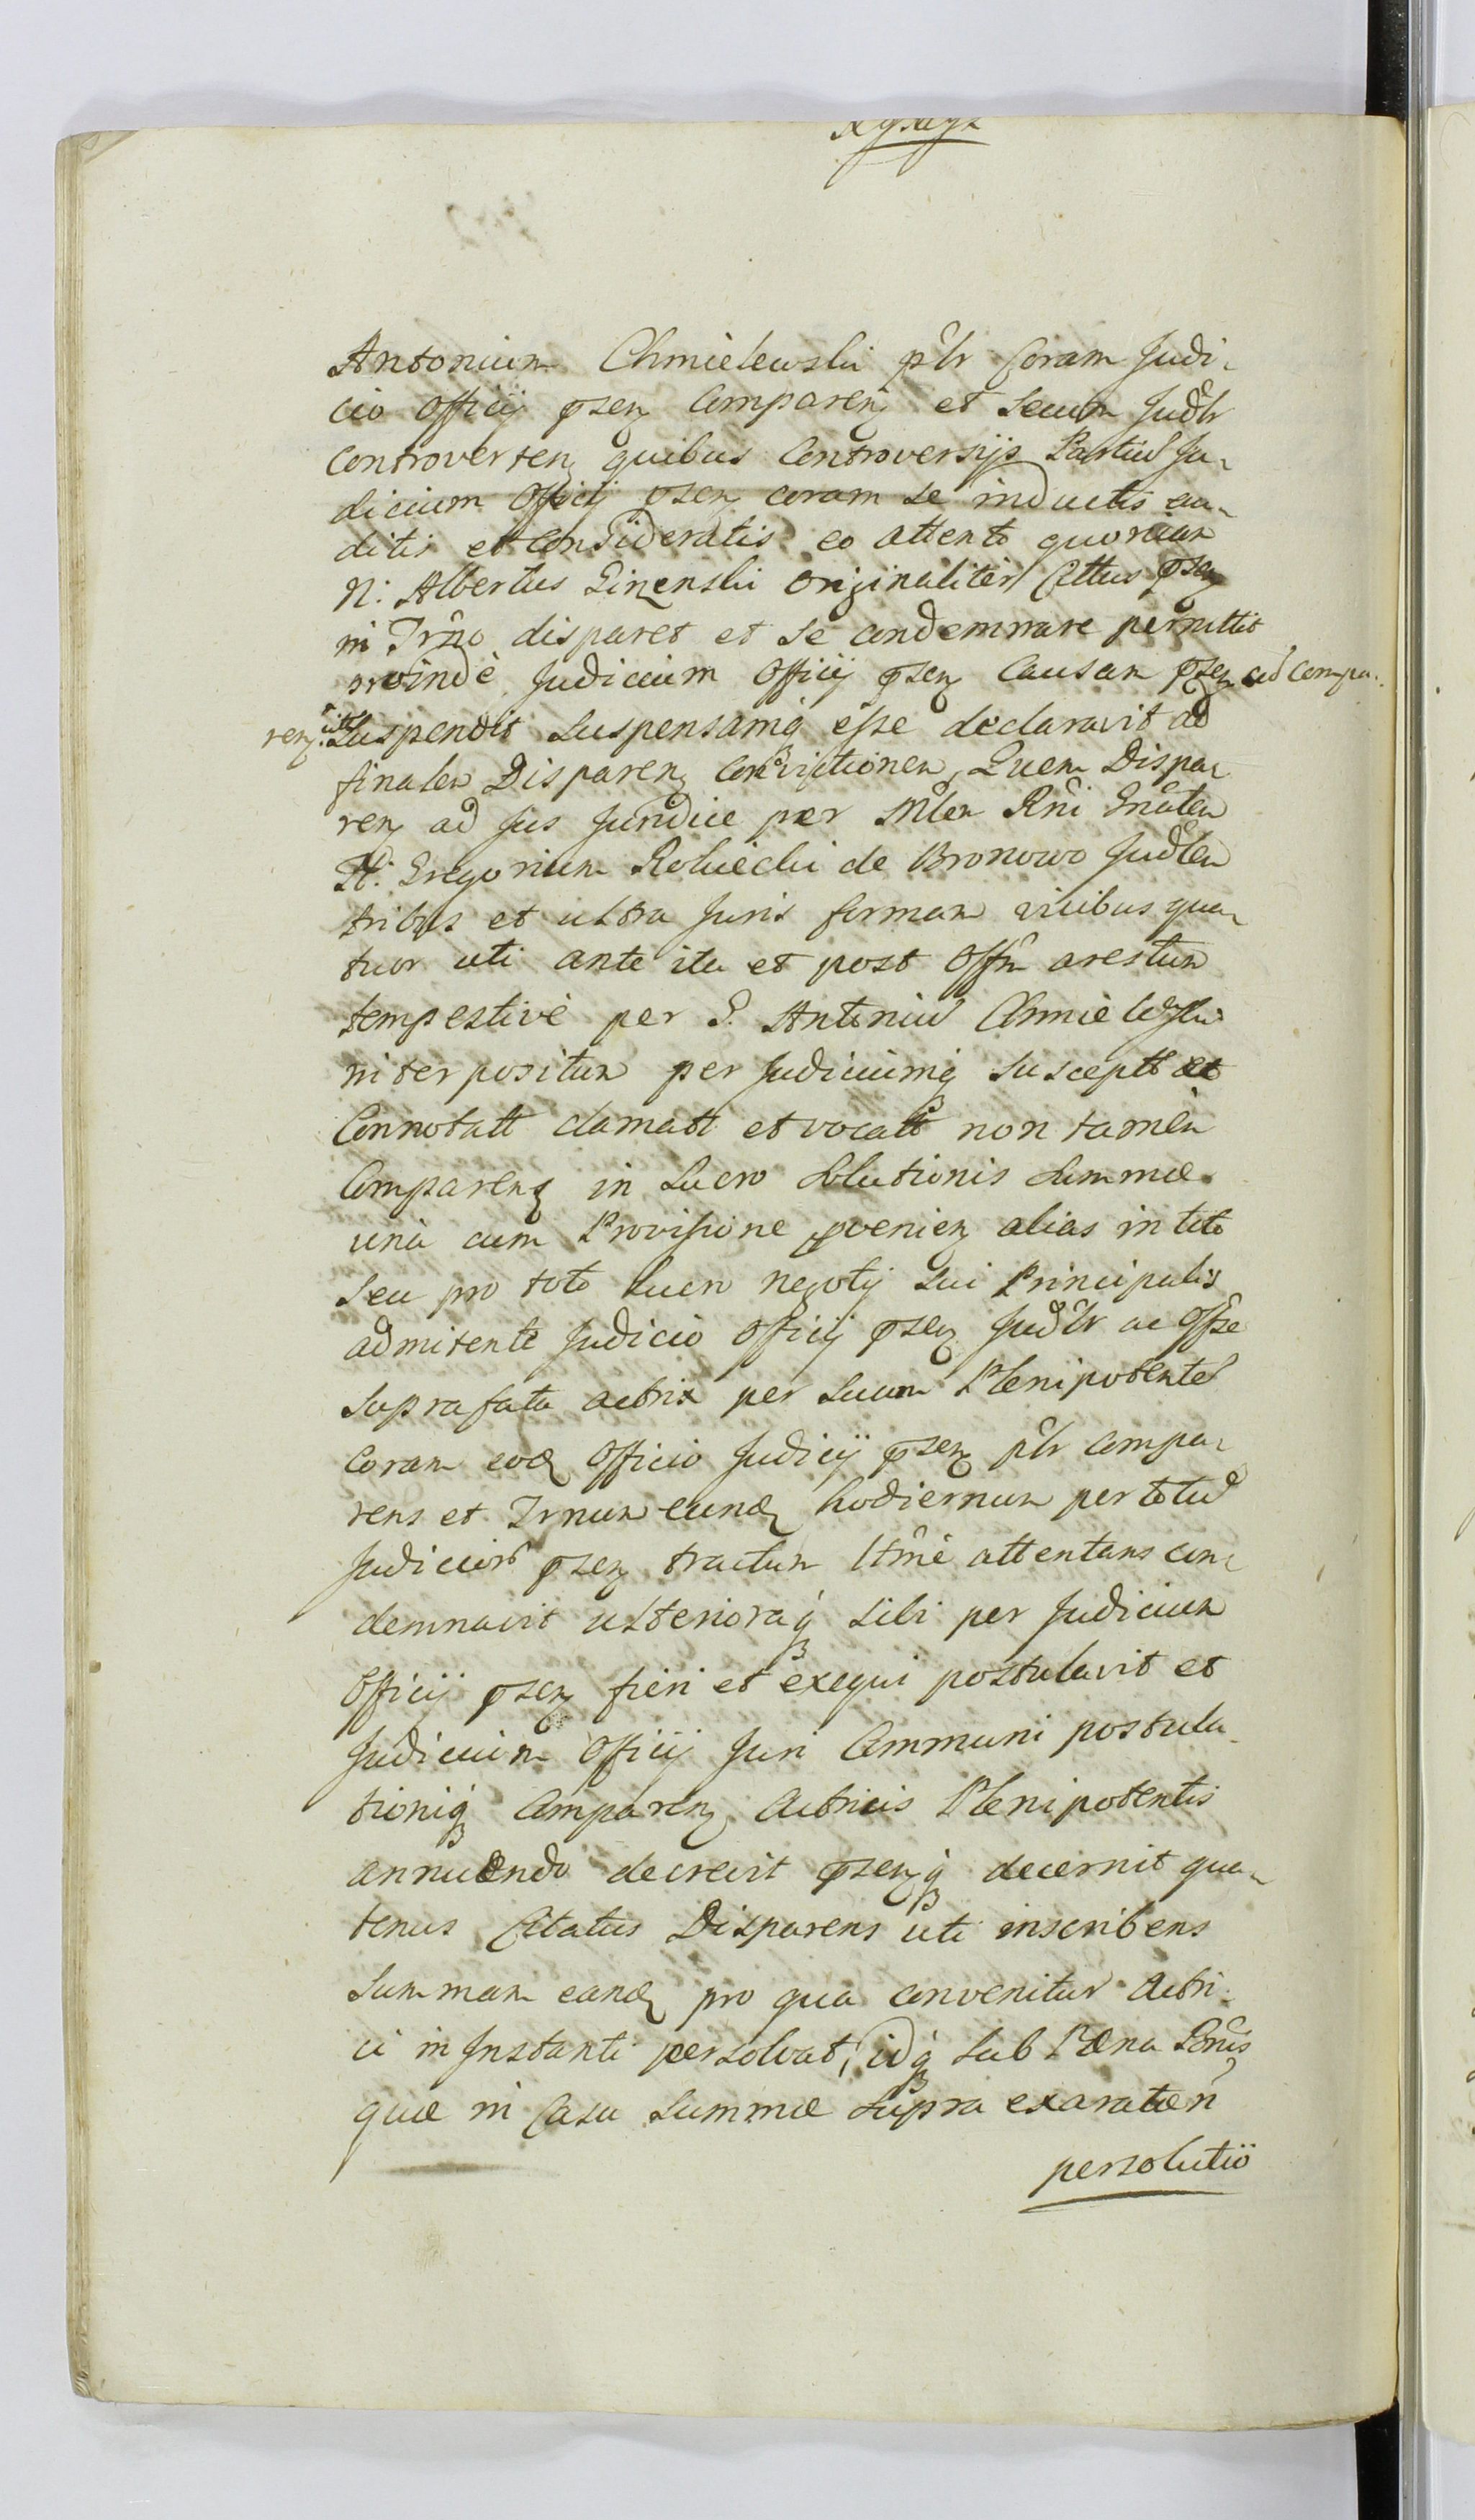 Antonium Chmielewski pŝlr Coram Judi-
cio Officij pseñ Compareñ et secum Judl̂r
Controverteñ quibus Controversijs Partiu͂ Ju-
dicium Officij pseñ coram se inductis au-
ditis et Consideratis eo attento quoniam
N: Albertus originaliter Cittus pseñ
in Trn̂o disparet et se condemnare permittit
proinde Judicium Officij pseñ Causam pseñ ad Compa-
reñ. uti suspendit suspensamq esse declaravit ad
finalem Dispareñ Convictionem, Quem Dispa-
reñ ad Jus Juridice per Mlem Rn̂i Gnâlem
H: Gregorium Robiecki de Bronowo Judl̂em
tribus et ultra Juris formam vicibus qua-
tuor uti ante ita et post Offm̂ arestum
tempestive per G. Antoniu͂ Chmielewski
interpositum per Judiciumq susceptt et
Connotatt clamatt et vocatt non tamen
Compareñ in Lucro solutionis summæ
una cum Provisione pvenieñ alias in toto
seu pro toto lucro negotij sui Principalis
admitente Judicio Officij pseñ Judl̂r ac Offse
suprafata actrix per suum Plenipotente͂
Coram eod Officio Judicij pseñ pŝlr Compa-
rens et Trnum eund hodiernum per totu͂
Judicior̂ pseñ tractum Ltm̂e attentans con-
demnavit ulterioraq sibi per Judicium
Officij pseñ fieri et exequi postulavit et
Judicium Officij Juri Communi postula-
tioniq Compareñ Actricis Plenipotentis
annuendo decrevit pseñq decernit qua-
tenus Citatus Disparens uti inscribens
summam eand pro qua convenitur Actri-
ci in Instanti persolvat, idq sub Pæna Bn̂is
quæ in Casu summæ supra exaratæ ñ
persolutio